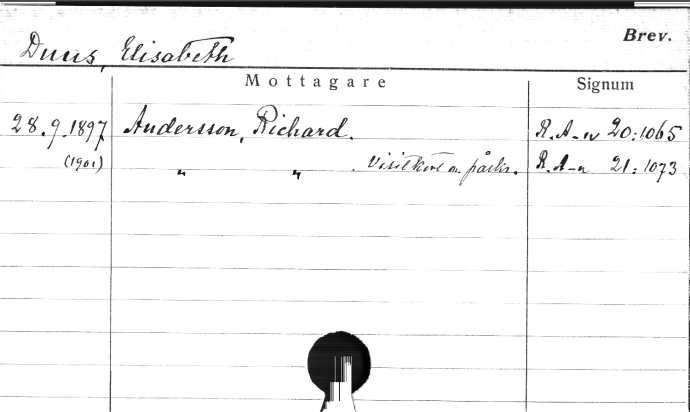 Brev.
Duus, Elisabeth
Mottagare Signum
28.9.1897 Andersson, Richard. R.A-n 20:1065
(1901) " " . Visitkort m. påskr. R.A-n 21:1073